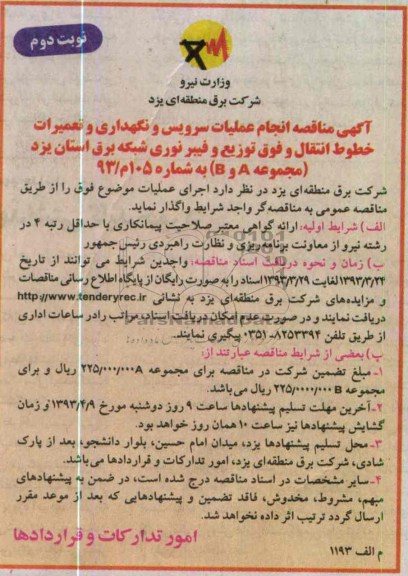 نوبت دوم
وزارت نیرو
شرکت برق منطقه‌ای یزد
آگهی مناقصه انجام عملیات سرویس و نگهداری و تعمیرات
خطوط انتقال و فوق توزیع و فیبر نوری شبکه برق استان یزد
(مجموعه A و B) به شماره ۱۰۵م/۹۳
شرکت برق منطقه‌ای یزد در نظر دارد اجرای عملیات موضوع فوق را از طریق
مناقصه عمومی به مناقصه‌گر واجد شرایط واگذار نماید.
الف) شرایط اولیه: ارائه گواهی معتبر صلاحیت پیمانکاری با حداقل رتبه ۴ در
رشته نیرو از معاونت برنامه‌ریزی و نظارت راهبردی رئیس جمهور
ب) زمان و نحوه دریافت اسناد مناقصه: واجدین شرایط می توانند از تاریخ
۱۳۹۳/۳/۲۴ لغایت ۱۳۹۳/۳/۲۹ اسناد را به صورت رایگان از پایگاه اطلاع رسانی مناقصات
و مزایده‌های شرکت برق منطقه‌ای یزد به نشانی http://www.tenderyrec.ir
دریافت نمایند و در صورت عدم امکان دریافت اسناد، مراتب را در ساعات اداری
از طریق تلفن ۸۲۵۳۳۹۴-۰۳۵۱ پیگیری نمایند.
پ) بعضی از شرایط مناقصه عبارتند از:
۱- مبلغ تضمین شرکت در مناقصه برای مجموعه A ۲۲۵/۰۰۰/۰۰۰ ریال و برای
مجموعه B ۲۲۵/۰۰۰/۰۰۰ ریال می‌باشد.
۲- آخرین مهلت تسلیم پیشنهادها ساعت ۹ روز دوشنبه مورخ ۱۳۹۳/۴/۹ و زمان
گشایش پیشنهادها نیز ساعت ۱۰ همان روز خواهد بود.
۳- محل تسلیم پیشنهادها یزد، میدان امام حسین، بلوار دانشجو، بعد از پارک
شادی، شرکت برق منطقه‌ای یزد، امور تدارکات و قراردادها می‌باشد.
۴- سایر مشخصات در اسناد مناقصه درج شده است، در ضمن به پیشنهادهای
مبهم، مشروط، مخدوش، فاقد تضمین و پیشنهادهایی که بعد از موعد مقرر
ارسال گردد ترتیب اثر داده نخواهد شد.
امور تدارکات و قراردادها
م الف ۱۱۹۳